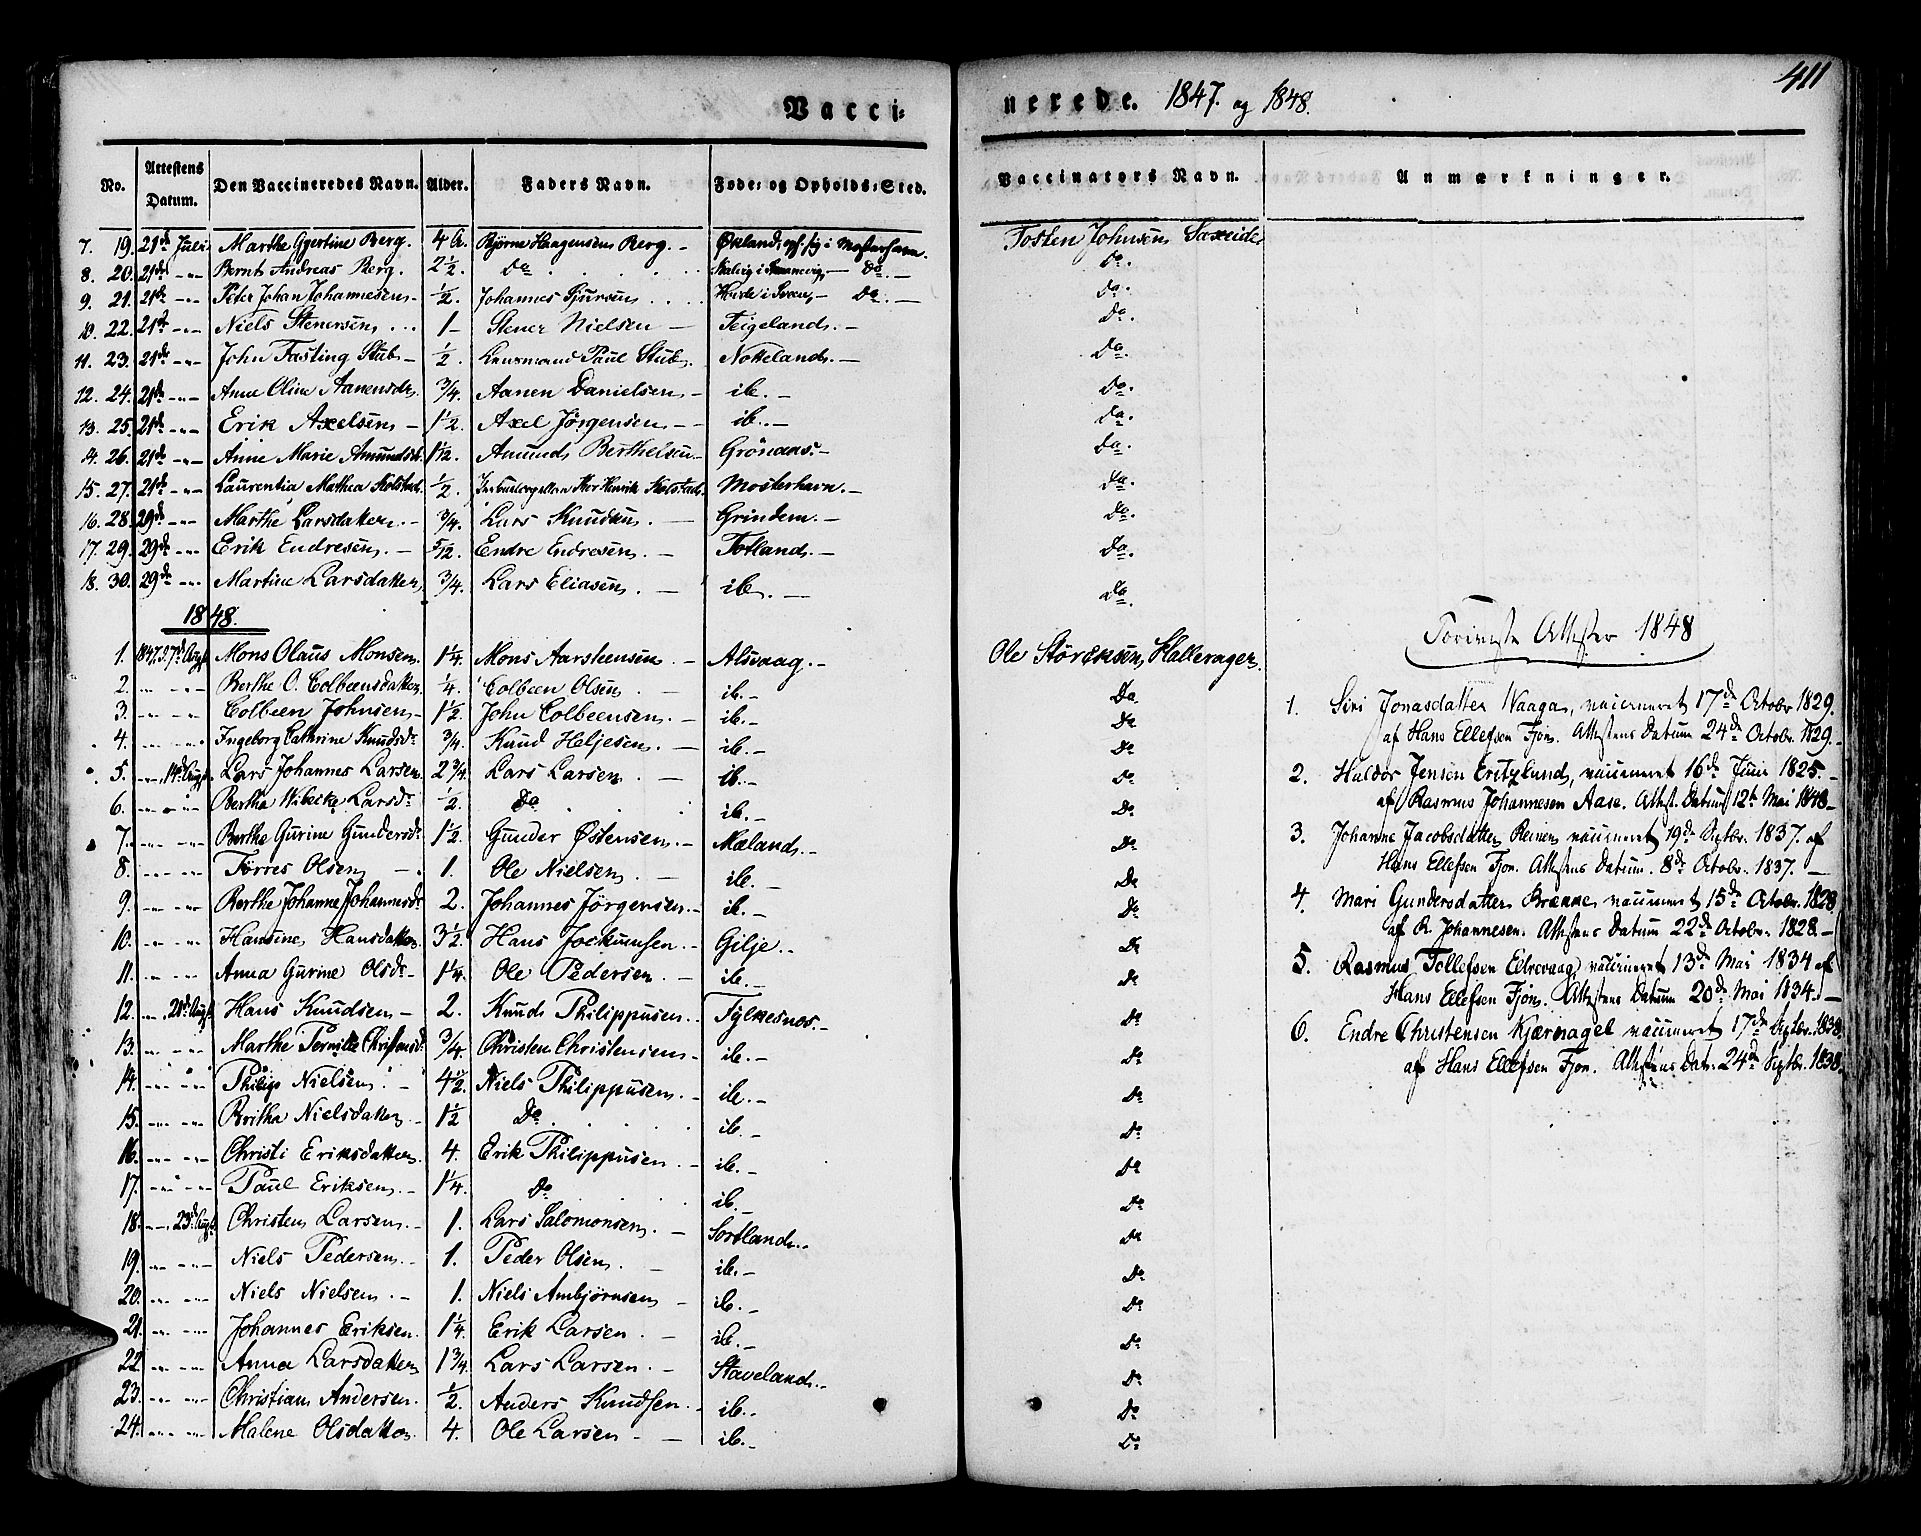 411
Vacci-
nerede. 1847. og 1848.
No. Attestens Datum. Den Vaccineredes Navn. Alder. Faders Navn. Føde- og Opholds-Sted. Vaccinators Navn. Anmærkninger.
7. 19. 21d Juli Marthe Gjertine Berg. 4 A. Bjørne Haagensens Berg. - Økland, i Mosterhavn. Tosten Johnsen Saxeide
8. 20. 21d -"- Bernt Andreas Berg. 2½. Do . . . . Do. - Do.
9. 21. 21d -"- Peter Johan Johannesen - ½. Johannes Sjursen . . . Do. - Do.
10. 22. 21d -"- Niels Stenersen . . . 1 - Stener Nielsen - Teigeland. - Do.
11. 23. 21d -"- John Fasting Stub - ½. Lensmand Paul Stub. Notteland. - Do.
12. 24. 21d -"- Anne Oline Aanensdr. ¾. Aanen Danielsen - ib. - Do.
13. 25. 21d -"- Erik Axelsen - 1½. Axel Jørgensen - ib. - Do.
14. 26. 21d -"- Anne Marie Amundsd. 1½. Amund Berthelsen - Grönaas. - Do.
15. 27. 21d -"- Laurentia Mathea Kolstad. ½. Henrik Kolstad. Mosterhavn. - Do.
16. 28. 29d -"- Marthe Larsdatter. - ¾. Lars Knudsen. - Grindem. - Do.
17. 29. 29d -"- Erik Endresen. - 5/12. Endre Endresen. - Totland. - Do.
18. 30. 29d -"- Martine Larsdatter. ¾. Lars Eliasen. - ib. - Do.
1848.
1. 1847. 7d Augt. Mons Olaus Monsen. 1¼. Mons Aarstensen. - Alsvaag. - Ole Størcksen, Halleragen.
2. -"- -"- Berthe O. Colbeensdatter. ¼. Colbeen Olsen. - ib. - Do
3. -"- -"- Colbeen Johnsen - 1½. John Colbeensen. - ib. - Do
4. -"- -"- Ingeborg Cathrine Knudsd. ¾. Knud Heljesen. - ib. - Do
5. -"- 14d Augt. Lars Johannes Larsen. 2¾. Lars Larsen. - ib. - Do
6. -"- -"- Bertha Wibecke Larsd. ½. Do . . . ib. - Do
7. -"- -"- Berthe Gurine Gundersd. 1½. Gunder Østensen. - Mæland. - Do
8. -"- -"- Torres Olsen - 1. Ole Nielsen. - ib. - Do
9. -"- -"- Berthe Johanne Johannesd. 2. Johannes Jørgensen. - ib. - Do
10. -"- -"- Hansine Hansdatter. 3½. Hans Jockumsen. - Gilje. - Do
11. -"- -"- Anna Gurine Olsd. - 1¼. Ole Pedersen. - ib. - Do
12. -"- 20d Augt. Hans Knudsen. - 2. Knud Philippusen. - Fylkesnæs. - Do
13. -"- -"- Marthe Pernille Christensd. ¾. Christen Christensen. - ib. - Do
14. -"- -"- Philip Nielsen. - 4½. Niels Philippusen. - ib. - Do
15. -"- -"- Britha Nielsdatter. - 1½ Do. . . . ib. - Do
16. -"- -"- Christi Eriksdatter. 4. Erik Philippusen. - ib. - Do
17. -"- -"- Paul Eriksen. - 1¼. Do . . . ib. - Do
18. -"- 23d Augt. Christen Larsen. - 1. Lars Salomonsen. - Sortland. - Do
19. -"- -"- Niels Pedersen. - 1. Peder Olsen. - ib. - Do
20. -"- -"- Niels Nielsen. - 1. Niels Ambjørnsen - ib. - Do
21. -"- -"- Johannes Eriksen. 1¼. Erik Larsen. - ib. - Do
22. -"- -"- Anna Larsdatter 1¾. Lars Larsen. - Staveland. - Do
23. -"- -"- Christian Andersen. ½. Anders Knudsen. - ib. - Do
24. -"- -"- Malene Olsdatter. 4. Ole Larsen - - ib. - Do
Attester 1848
1. Siri Jonasdatter Waage, vaccineret 17d Octobr 1829.
af Hans Ellefsen Fjon. Attestens Datum 24d Octobr. 1829. -
2. Haldor Jensen Eritzlund, vaccineret 16d Junii 1825. -
af Rasmus Johannesen Aase. Attest. Datum 12t Mai 1848 -
3. Johanne Jacobsdatter Reinen vaccineret 19d Septbr. 1837. af
Hans Ellefsen Fjon. Attestens Datum. 8d Octobr. 1837. -
4. Mari Gundersdatter Brekke vaccineret 15d Octobr. 1828.
af R. Johannesen. Attestens Datum 22d Octobr. 1828. -
5. Rasmus Tollefsen Eltrevaag, vaccineret 13d Mai 1834 af
Hans Ellefsen Fjon. Attestens Datum 20d Mai 1834. -
6. Endre Christensen Kjærnagel vaccineret 17d Septbr. 1838.
af Hans Ellefsen Fjon. Attestens Dat. 24d Septbr. 1838.